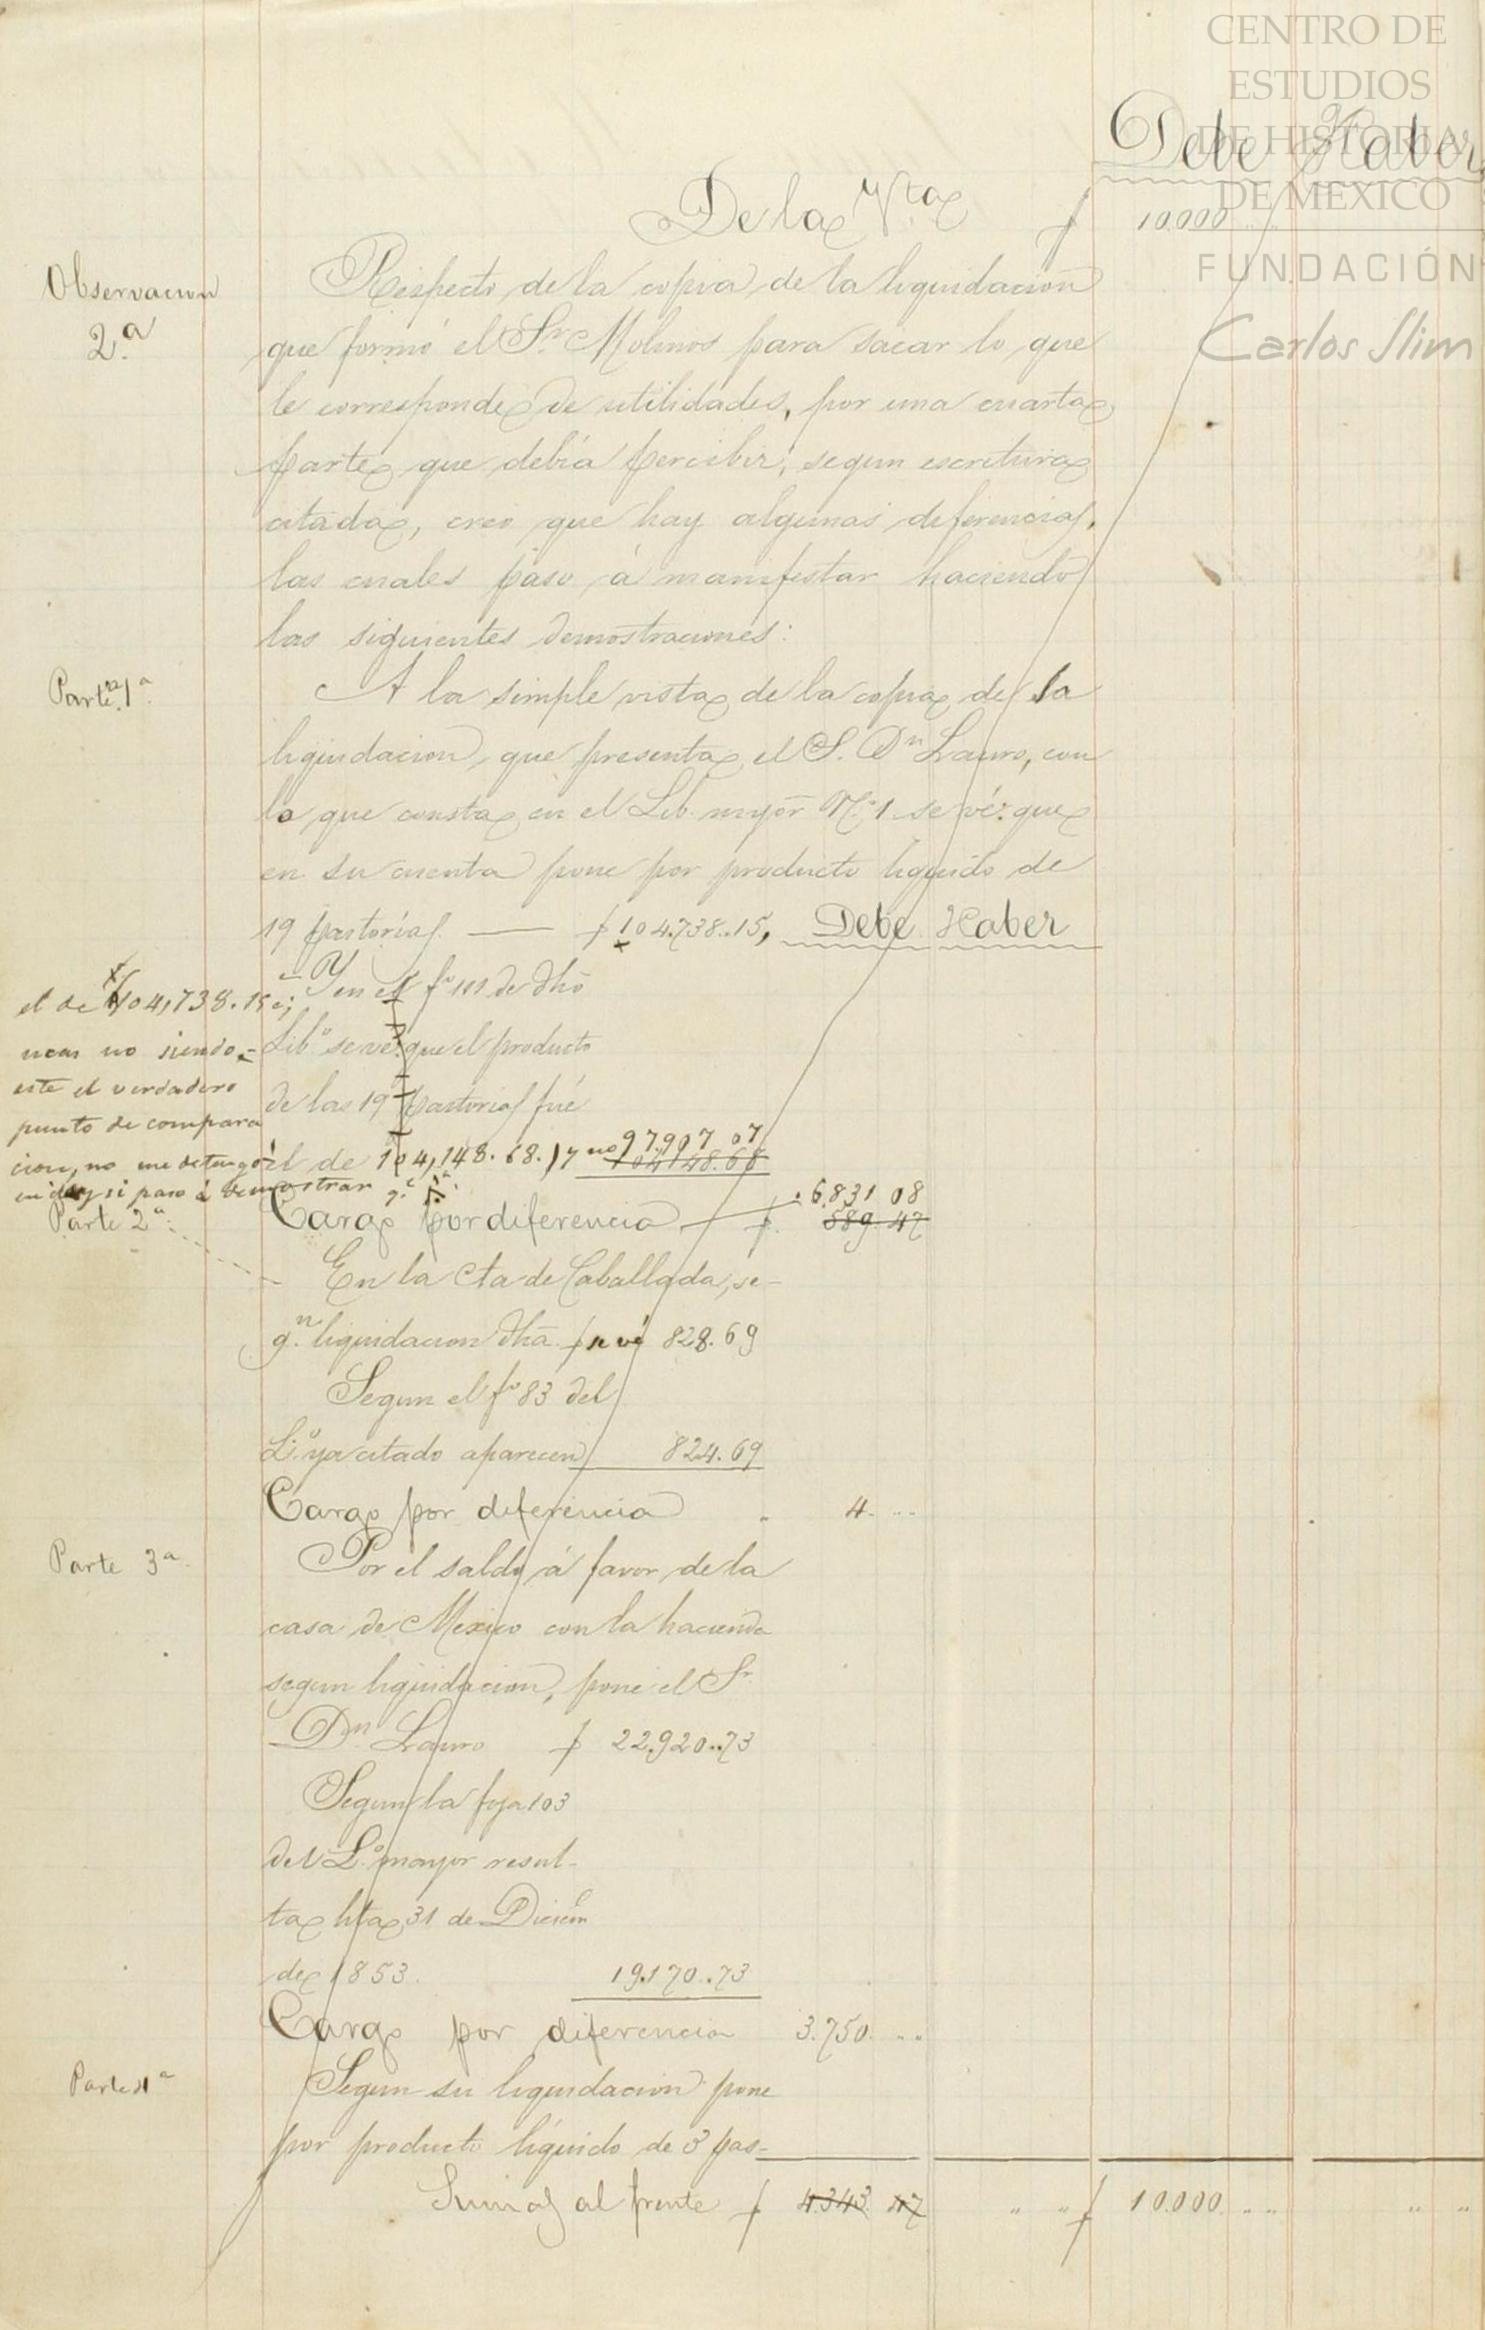 CENTRO DE
ESTUDIOS
DE HISTORIA
DE MEXICO
FUNDACIÓN
Carlos Slim
Debe Haber
De la Vta $ 10.000 " "
Observacion
2.a
Respecto de la copia de la liquidacion
que formó el Sr. Molinos para sacar lo que
le corresponde de utilidades, por una cuarta
parte que debía percibir, segun escritura
citada, creo que hay algunas diferencias,
las cuales paso á manifestar haciendo
las siguientes demostraciones:
Parte 1a.
A la simple vista de la copia de la
liquidacion, que presenta el S. Dn Lauro, con
lo que consta en el Lib. mayor N.o 1 se vé: que
en su cuenta pone por producto liquido de
19 pastorías — $ 104.738..15, Debe Haber
Y en el fo 111 de dho
Libo se ve: que el producto
de las 19 pastorias fué
el de 104,148.68.) y no 97.907 07
104148.68
el de $104,738.15 c;
mas no siendo
este el verdadero
punto de compara
cion, no me detengo
en el y si paso á demostrar
q.e
6.831 08
Cargo por diferencia $. 589.47
Parte 2a.
En la Cta de Caballada, se-
g.n liquidacion dha. se vé 828.69
Segun el fo 83 del
L.o ya citado aparecen 824.69
Cargo por diferencia " 4. " "
Parte 3a.
Por el saldo á favor de la
casa de Mexico con la hacienda
segun liquidacion, pone el Sr.
Dn. Lauro $ 22.920..73
Segun la foja 103
del L.o mayor resul-
ta hta 31 de Diciem
de 1853. 19.170..73
Cargo por diferencia 3.750. " "
Parte 4a
Segun su liquidacion pone
por producto líquido de 3 pas-
Sumas al frente $ 4.343. 47 " " $ 10.000. " " " "